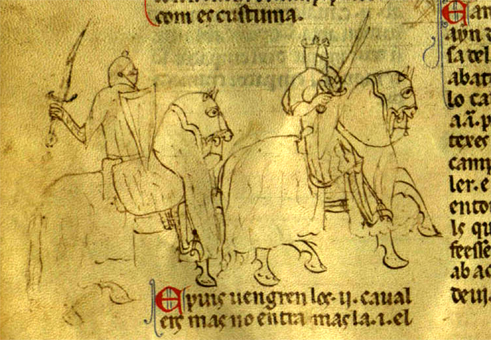 com es custuma.
E puis uengren los .ii. caual
ers mas no entra mas la .i. el
ayn d
sa del
abat
lo ca
camp
ler. e
ento
le qu
feesse
ab ac